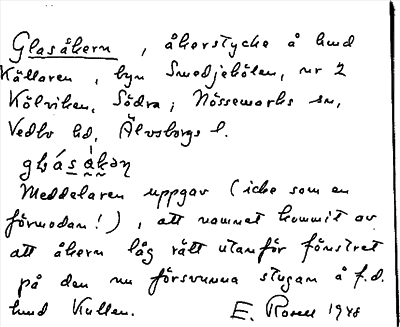 Glasåkern, åkerstycke å hmd
Källaren, byn Smedjebölen, nr 2
Kölviken, Södra; Nössemarks sn,
Vedbo hd, Älvsborgs l.
Meddelaren uppgav (icke som en
förmodan!), att namnet kommit av
att åkern låg rätt utanför fönstret
på den nu försvunna stugan å f.d.
hmd Kullen. E. Rosell 1948